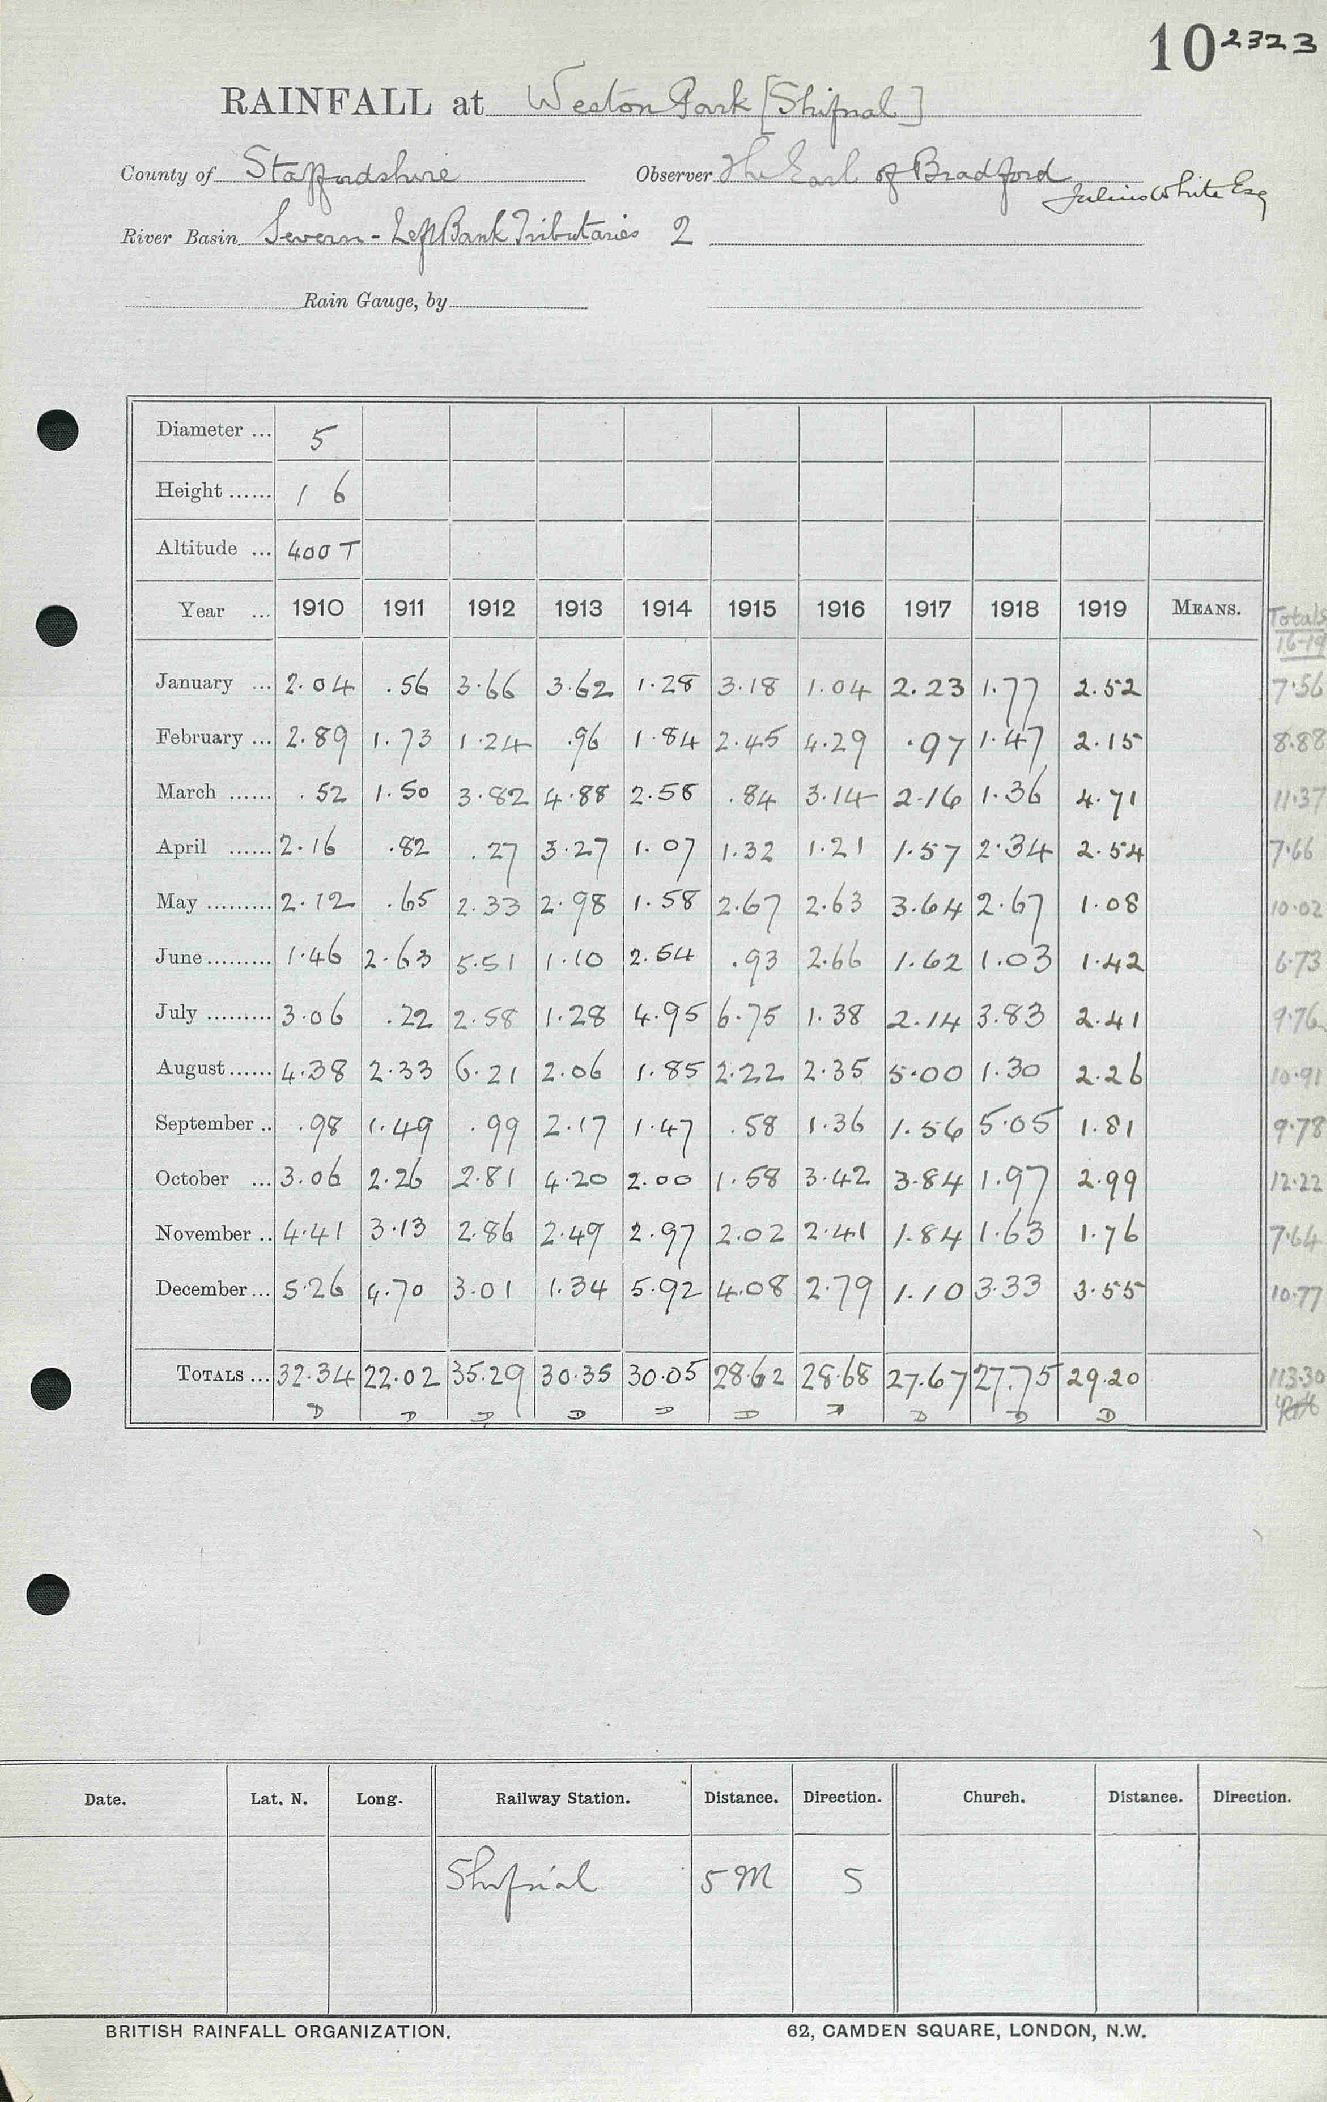 10 2323
RAINFALL at Weston Park [Shifnal]
County of Staffordshire Observer The Earl of Bradford
Julius White Esq
River Basin Severn - Left Bank Tributaries 2
Rain Gauge, by
Diameter ... 5
Height ...... 1 6
Altitude ... 400 T
Year ... 1910 1911 1912 1913 1914 1915 1916 1917 1918 1919 MEANS. Totals 16-19
January ... 2.04 .56 3.66 3.62 1.28 3.18 1.04 2.23 1.77 2.52 7.56
February ... 2.89 1.73 1.24 .96 1.84 2.45 4.29 .97 1.47 2.15 8.88
March ...... .52 1.50 3.82 4.88 2.58 .84 3.14 2.16 1.36 4.71 11.37
April ...... 2.16 .82 .27 3.27 1.07 1.32 1.21 1.57 2.34 2.54 7.66
May ......... 2.12 .65 2.33 2.98 1.58 2.67 2.63 3.64 2.67 1.08 10.02
June ......... 1.46 2.63 5.51 1.10 2.54 .93 2.66 1.62 1.03 1.42 6.73
July ......... 3.06 .22 2.58 1.28 4.95 6.75 1.38 2.14 3.83 2.41 9.76
August ...... 4.38 2.33 6.21 2.06 1.85 2.22 2.35 5.00 1.30 2.26 10.91
September .. .98 1.49 .99 2.17 1.47 .58 1.36 1.56 5.05 1.81 9.78
October ... 3.06 2.26 2.81 4.20 2.00 1.58 3.42 3.84 1.97 2.99 12.22
November .. 4.41 3.13 2.86 2.49 2.97 2.02 2.41 1.84 1.63 1.76 7.64
December ... 5.26 4.70 3.01 1.34 5.92 4.08 2.79 1.10 3.33 3.55 10.77
TOTALS ... 32.34 22.02 35.29 30.35 30.05 28.62 28.68 27.67 27.75 29.20 113.30
D D D D D D D D D
Date. Lat. N. Long. Railway Station. Distance. Direction. Church. Distance. Direction.
Shifnal 5 M S
BRITISH RAINFALL ORGANIZATION. 62, CAMDEN SQUARE, LONDON, N.W.